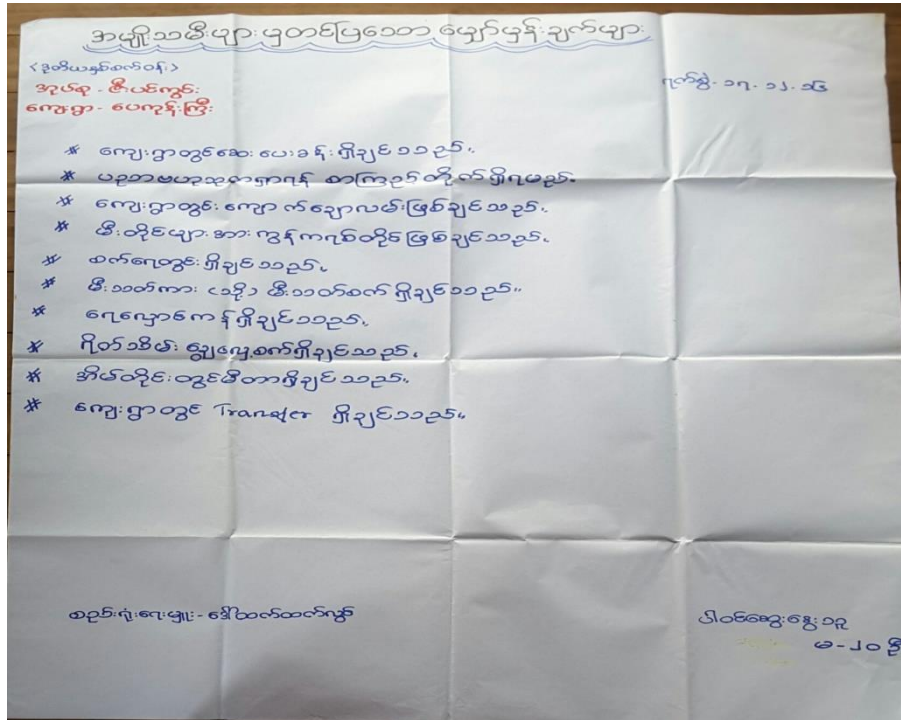 အမျိုးသမီးများမှတင်ပြသော မျှော်မှန်းချက်များ
<ဒုတိယနှစ်စက်ဝန်း>
အုပ်စု - ဇီးပင်ကွင်း
ကျေးရွာ - ပေကုန်းကြီး
ရက်စွဲ - ၁၅-၁၂-၁၆
* ကျေးရွာတွင်ဆေးပေးခန်းရှိချင်သည်။
* ပညာဗဟုသုတရှာရန် စာကြည့်တိုက်ရှိရမည်။
* ကျေးရွာတွင်း ကျောက်ချောလမ်းဖြစ်ချင်သည်။
* မီးတိုင်များအား ကွန်ကရစ်တိုင်ဖြစ်ချင်သည်။
* စက်ရေတွင်းရှိချင်သည်။
* မီးသတ်ကား (သို့) မီးသတ်စက်ရှိချင်သည်။
* ရေလှောင်ကန်ရှိချင်သည်။
* ရိတ်သိမ်းချွေလှေ့စက်ရှိချင်သည်။
* အိမ်တိုင်းတွင်မီတာရှိချင်သည်။
* ကျေးရွာတွင် Transfer ရှိချင်သည်။
စည်းရုံးရေးမှူး - ဒေါ်ထက်ထက်လွင်
ပါဝင်ဆွေးနွေးသူ
မ - ၂၀ ဦး